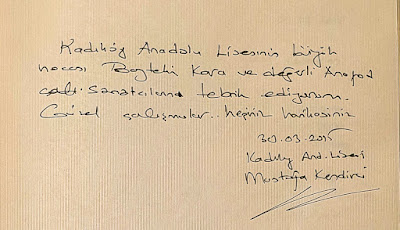 Kadıköy Anadolu Lisesinin büyük
hocası Beytekin Kara ve değerli Anapod
sanatcılarını tebrik ediyorum.
Güzel çalışmalar.. hepiniz harikasınız
30.03.2015
Kadıköy And. Lisesi
Mustafa Kendirci